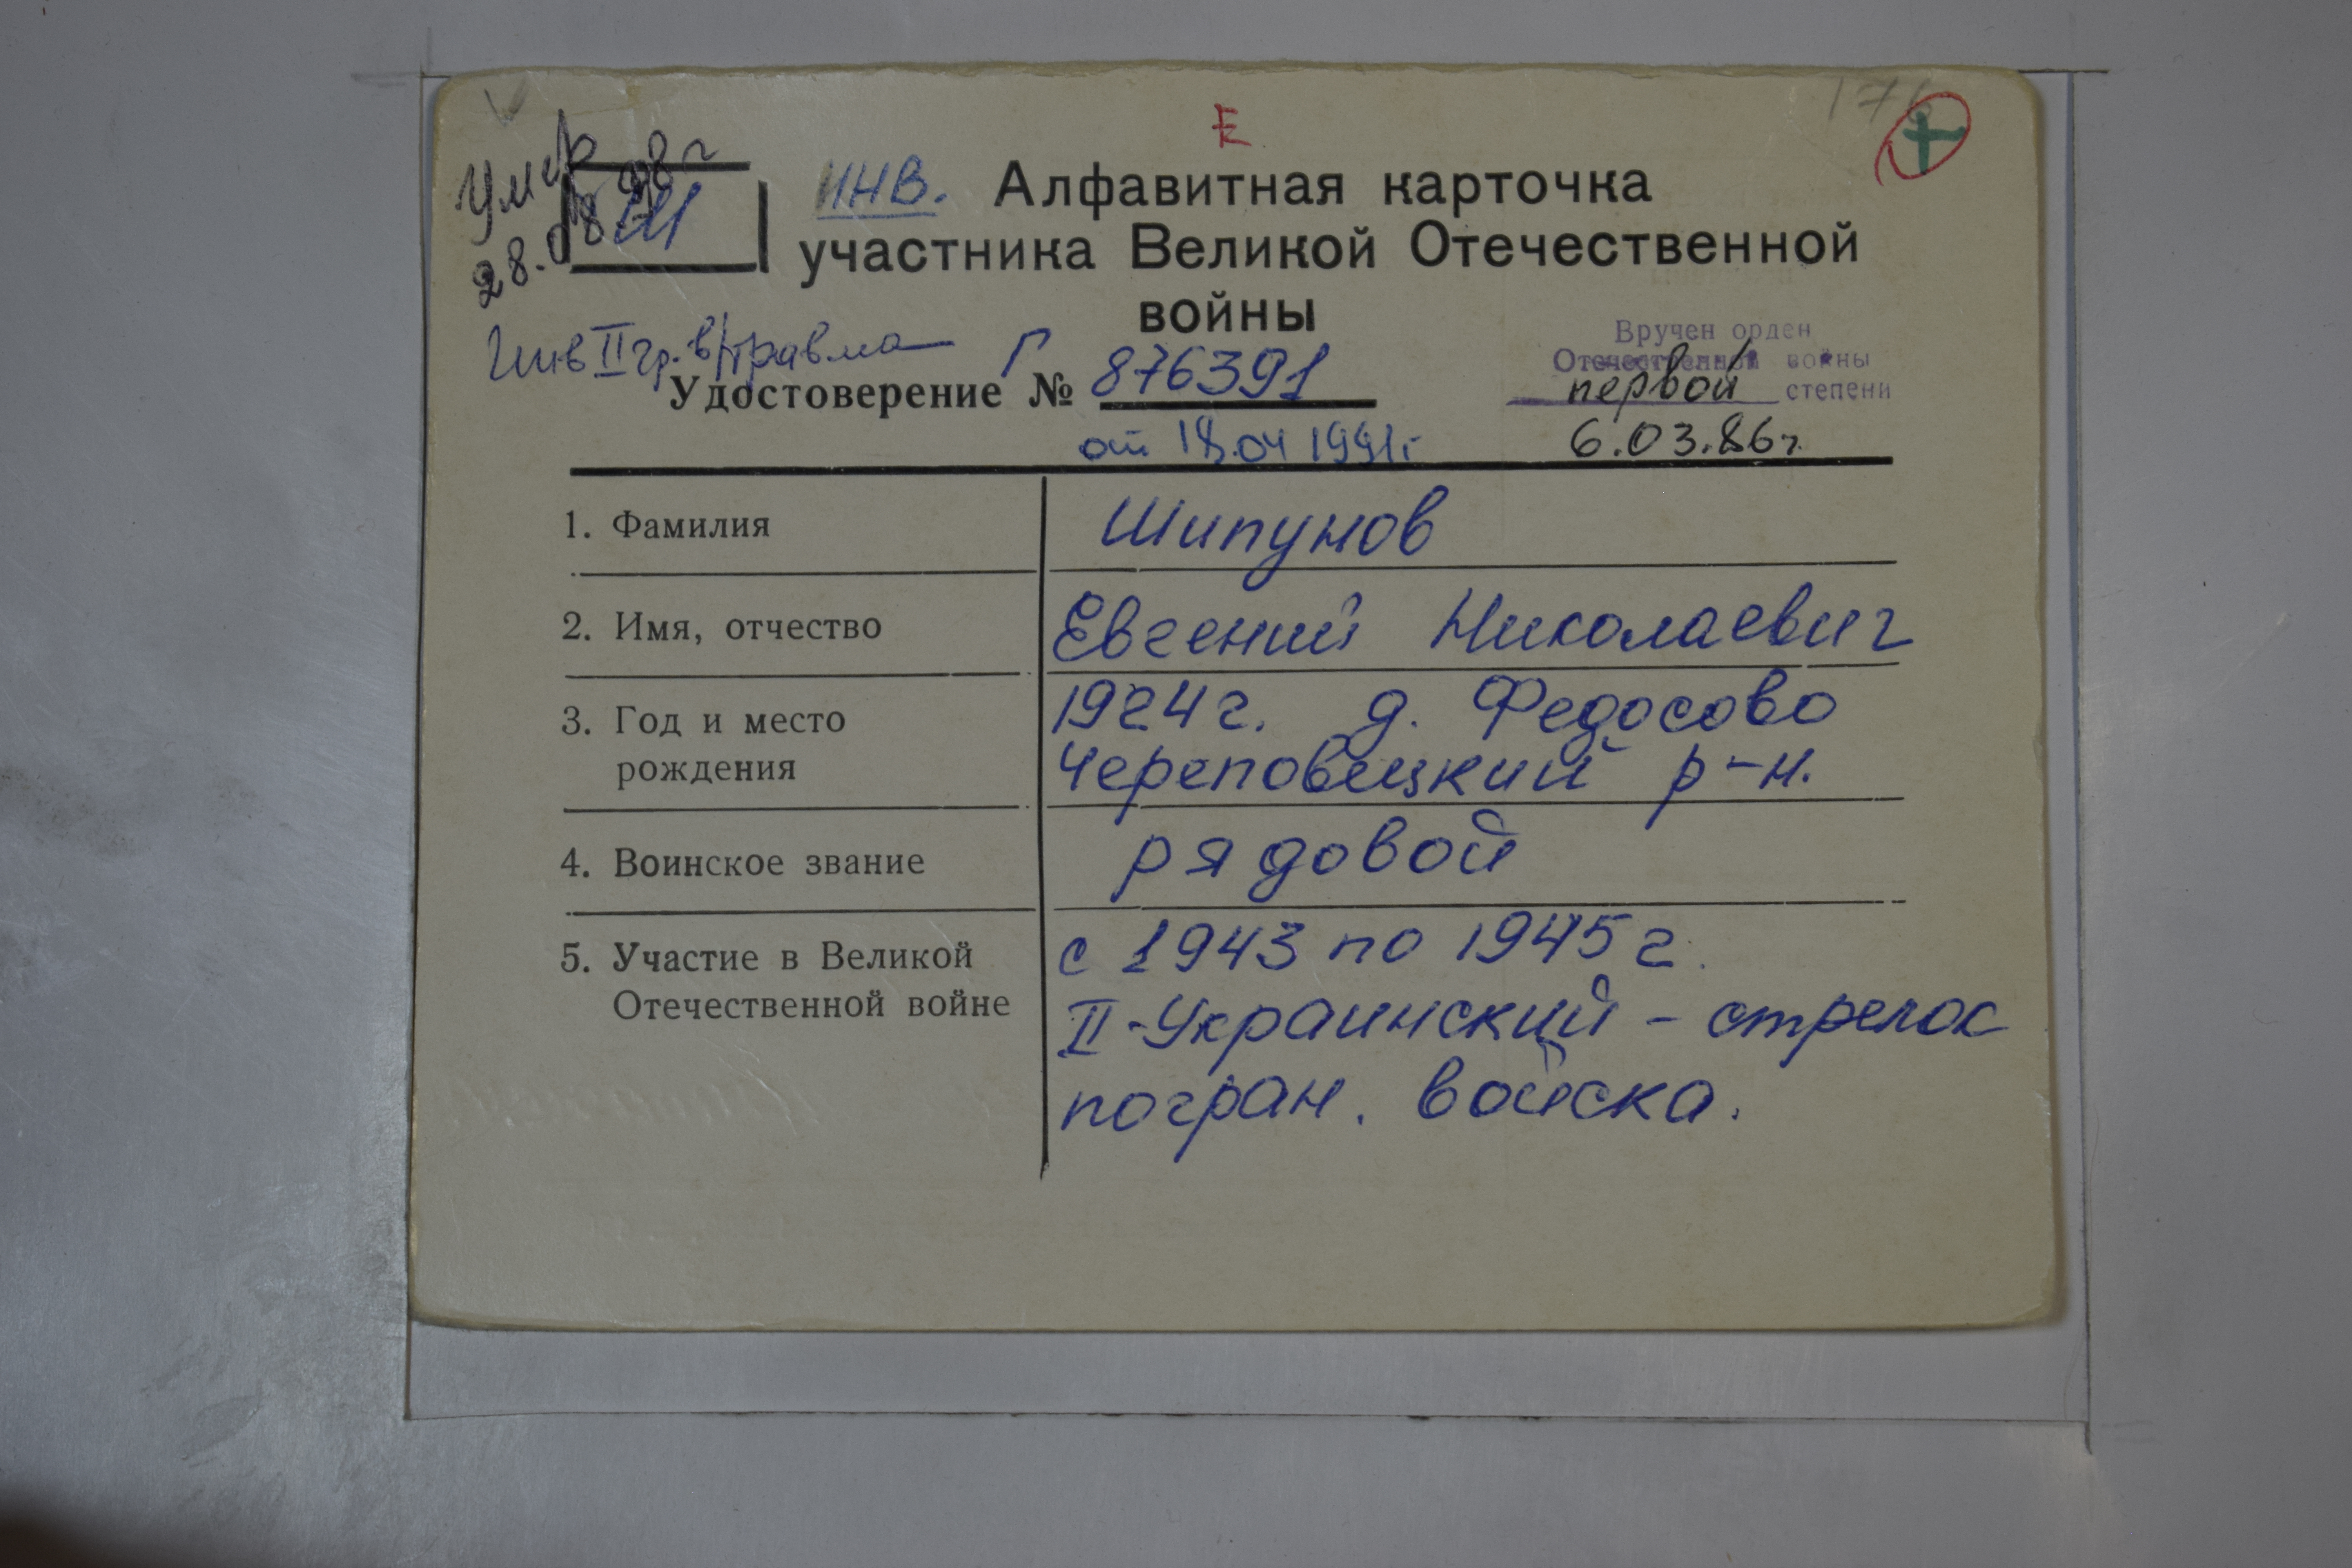 176
Е
Умер
28.08.98г
Ш
ИНВ. Алфавитная карточка
участника Великой Отечественной
войны
Инв II гр. в/травма
Удостоверение № Г 876391
от 18.04 1991г
Вручен орден
Отечественной войны
первой степени
6.03.86г.
1. Фамилия
Шипунов
2. Имя, отчество
Евгений Николаевич
3. Год и место
рождения
1924г. д. Федосово
Череповецкий р-н.
4. Воинское звание
рядовой
5. Участие в Великой
Отечественной войне
с 1943 по 1945 г.
II-Украинский - стрелок
погран. войска.